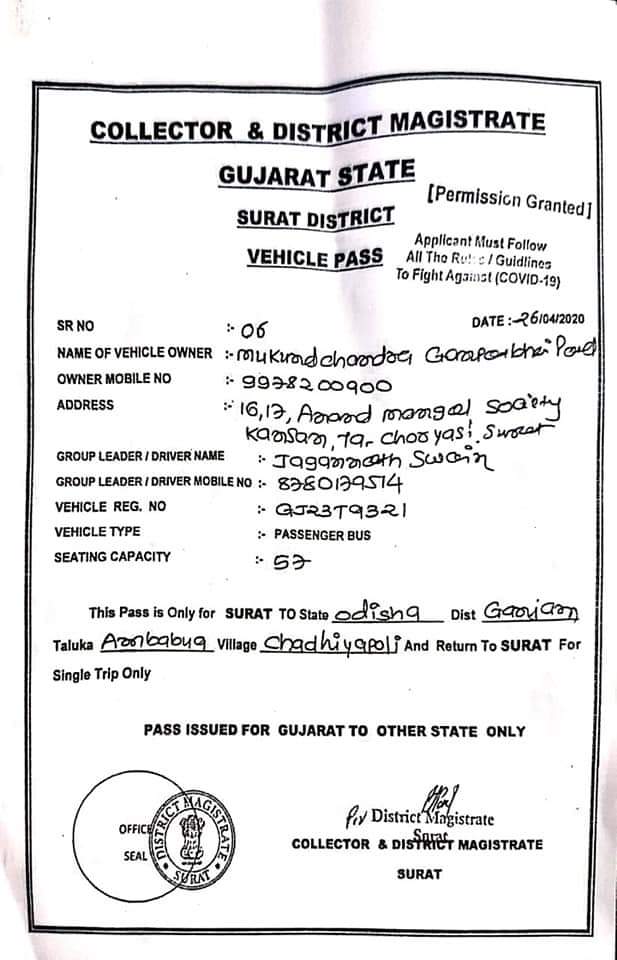 COLLECTOR & DISTRICT MAGISTRATE
GUJARAT STATE
[Permission Granted]
SURAT DISTRICT
VEHICLE PASS
Applicant Must Follow
All The Rules / Guidlines
To Fight Against (COVID-19)
SR NO :- 06
DATE :- 26/04/2020
NAME OF VEHICLE OWNER :- mukundchandra
OWNER MOBILE NO :- 9978200900
ADDRESS :- 16,17, Anand mangal society
Choryasi. Surat
GROUP LEADER / DRIVER NAME :- Jagannath Swain
GROUP LEADER / DRIVER MOBILE NO :- 8780179514
VEHICLE REG. NO :- GJ23T9321
VEHICLE TYPE :- PASSENGER BUS
SEATING CAPACITY :- 57
This Pass is Only for SURAT TO State odisha Dist Ganjam
Taluka Village Chadhiyapoli And Return To SURAT For
Single Trip Only
PASS ISSUED FOR GUJARAT TO OTHER STATE ONLY
OFFICE
SEAL
DISTRICT MAGISTRATE
SURAT
District Magistrate
Surat
COLLECTOR & DISTRICT MAGISTRATE
SURAT